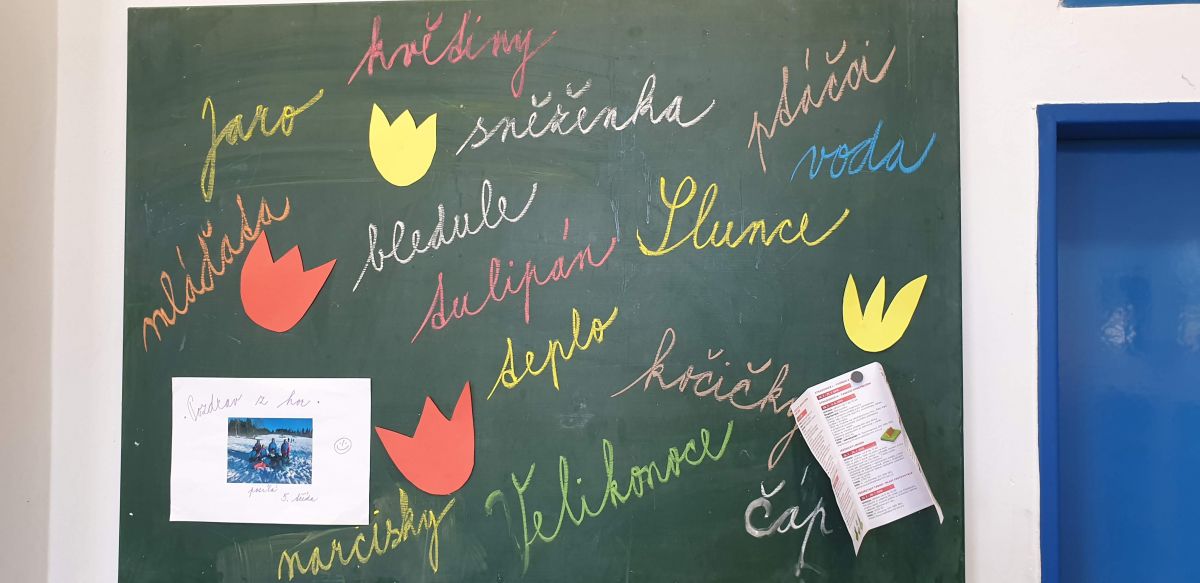 květiny
Jaro
sněženka
ptáčci
voda
mláďata
bledule
Slunce
tulipán
teplo
kočičky
Pozdrav z hor.
posílá
5. třída
Velikonoce
čáp
narcisky